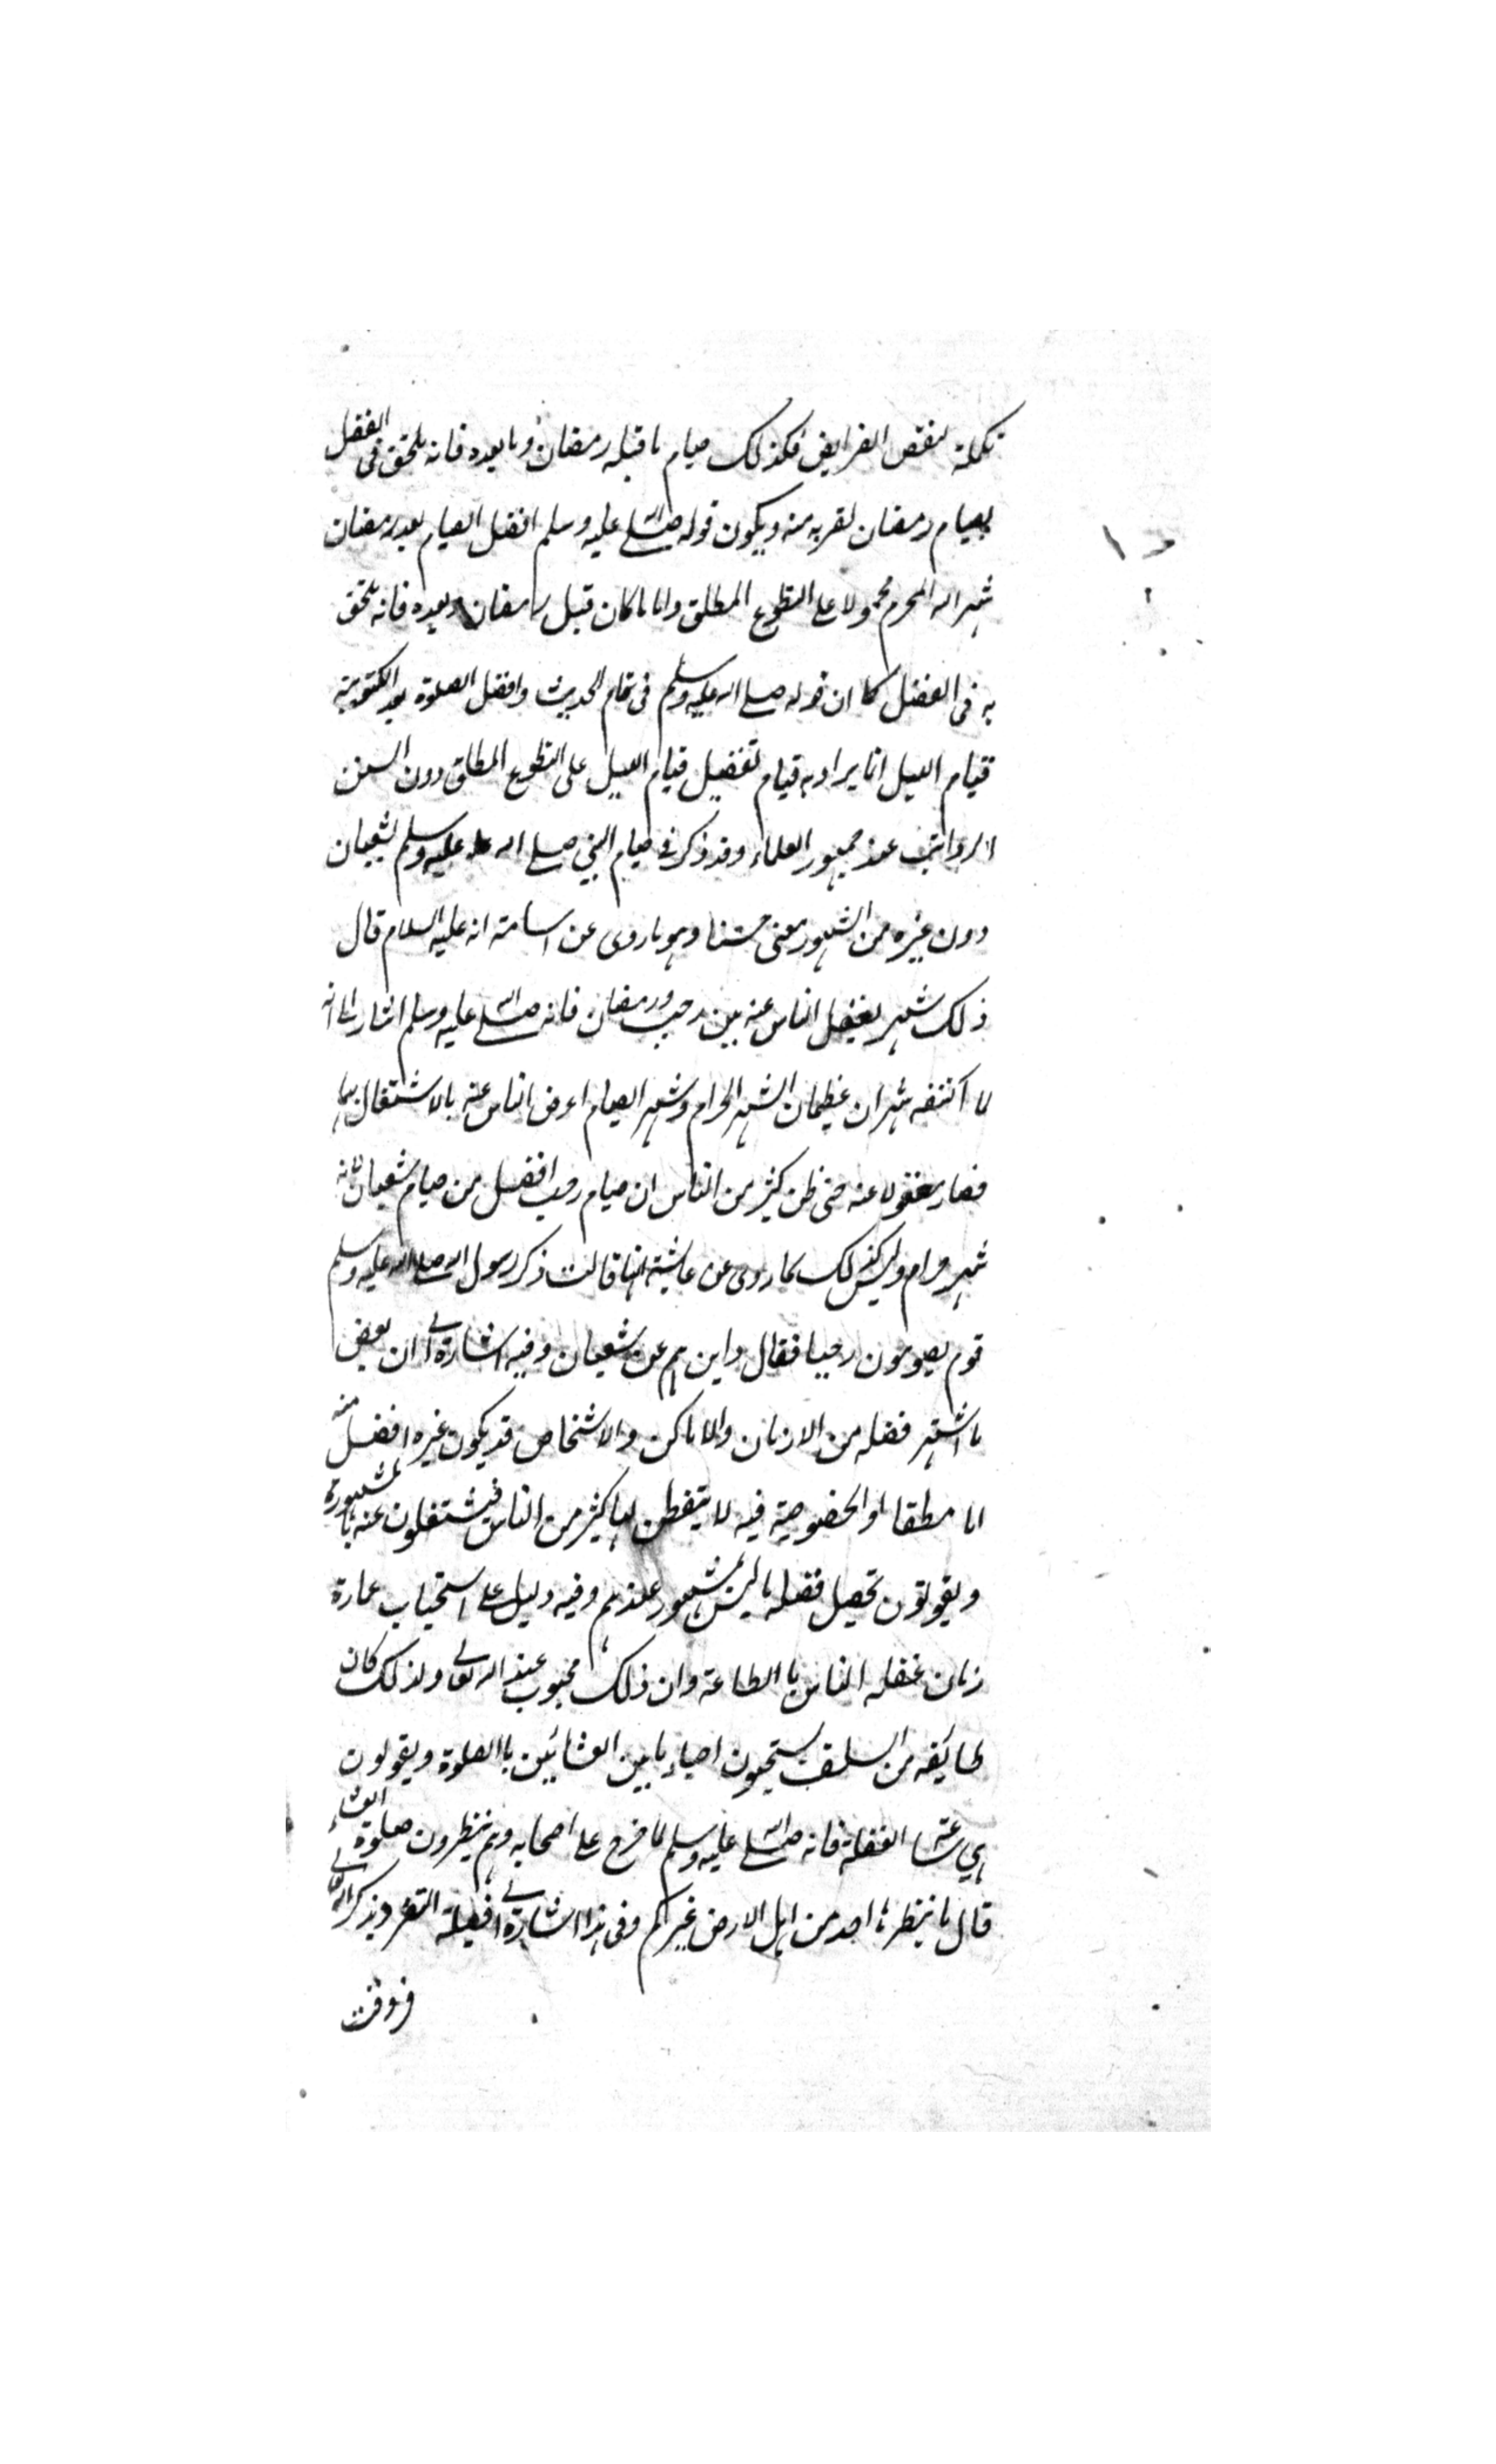 تكملة لنقص الفرايض فكذلك صيام ما قبله رمضان وما بعده فانه يلتحق في الفضل
بصيام رمضان لقربه منه ويكون قوله صلى الله عليه وسلم افضل الصيام بعد رمضان
شهر الله المحرم محمولا على التطوع المطلق واما ما كان قبل رمضان وبعده فانه يلتحق
به في الفضل كما ان قوله صلى الله عليه وسلم في تمام الحديث وافضل الصلوة بعد المكتوبة
قيام الليل انما يراد به قيام تفضيل قيام الليل على التطوع المطلق دون السنن
الرواتب عند جمهور العلماء وقد ذكر في صيام النبي صلى الله عليه وسلم لشعبان
دون غيره من الشهور معنى حسنا وهو ما روى عن اسامة انه عليه السلام قال
ذلك شهر يغفل الناس عنه بين رجب ورمضان فانه صلى الله عليه وسلم اشار الى انه
لما اكتنفه شهران عظيمان الشهر الحرام وشهر الصيام اعرض الناس عنه بالاشتغال بهما
فصار مغفولا عنه حتى ظن كثير من الناس ان صيام رجب افضل من صيام شعبان لانه
شهر حرام وليس كذلك لما روى عن عايشة انها قالت ذكر رسول الله صلى الله عليه وسلم
قوم يصومون رجبا فقال واين هم عن شعبان وفيه اشارة الى ان بعض
ما اشتهر فضله من الازمان والاماكن والاشخاص قد يكون غيره افضل منه
اما مطلقا او لخصوصية فيه لا يتفطن لها كثير من الناس فيشتغلون عنه بالمشهورة
ويفوتون تحصيل فضله ما ليس بمشهور عندهم وفيه دليل على استحباب عمارة
زمان غفلة الناس باالطاعة وان ذلك محبوب عند الله تعالى ولذلك كان
طائفه من السلف يستحبون احياء ما بين العشائين باالصلوة ويقولون
هي ساعة الغفلة فانه صلى الله عليه وسلم لما خرج على اصحابه وهم ينتظرون صلوة العشاء
قال ما ينتظرها احد من اهل الارض غيركم وفي هذا اشارة الى افضيلة التفرد بذكر الله تعالى
في وقت